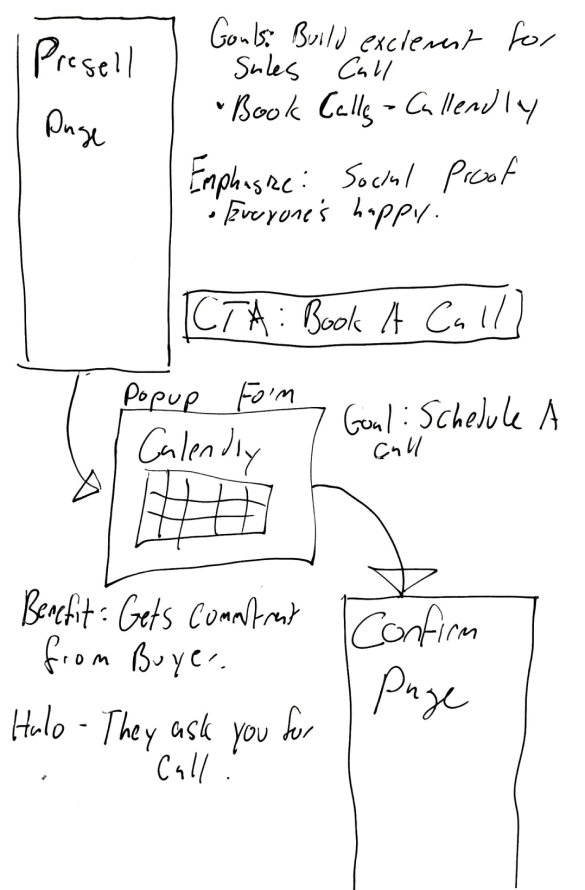 Presell
Page
Goals: Build exciement for
Sales Call
• Book Calls - Callendly
Emphasize: Social Proof
• Everyone's happy.
CTA: Book A Call
Popup Form
Calendly
Goal: Schedule A
Call
Benefit: Gets Commitment
from Buyer.
Halo - They ask you for
Call.
Confirm
Page